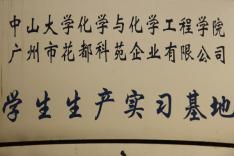 中山大学化学与化学工程学院
广州市花都科苑企业有限公司
学生生产实习基地